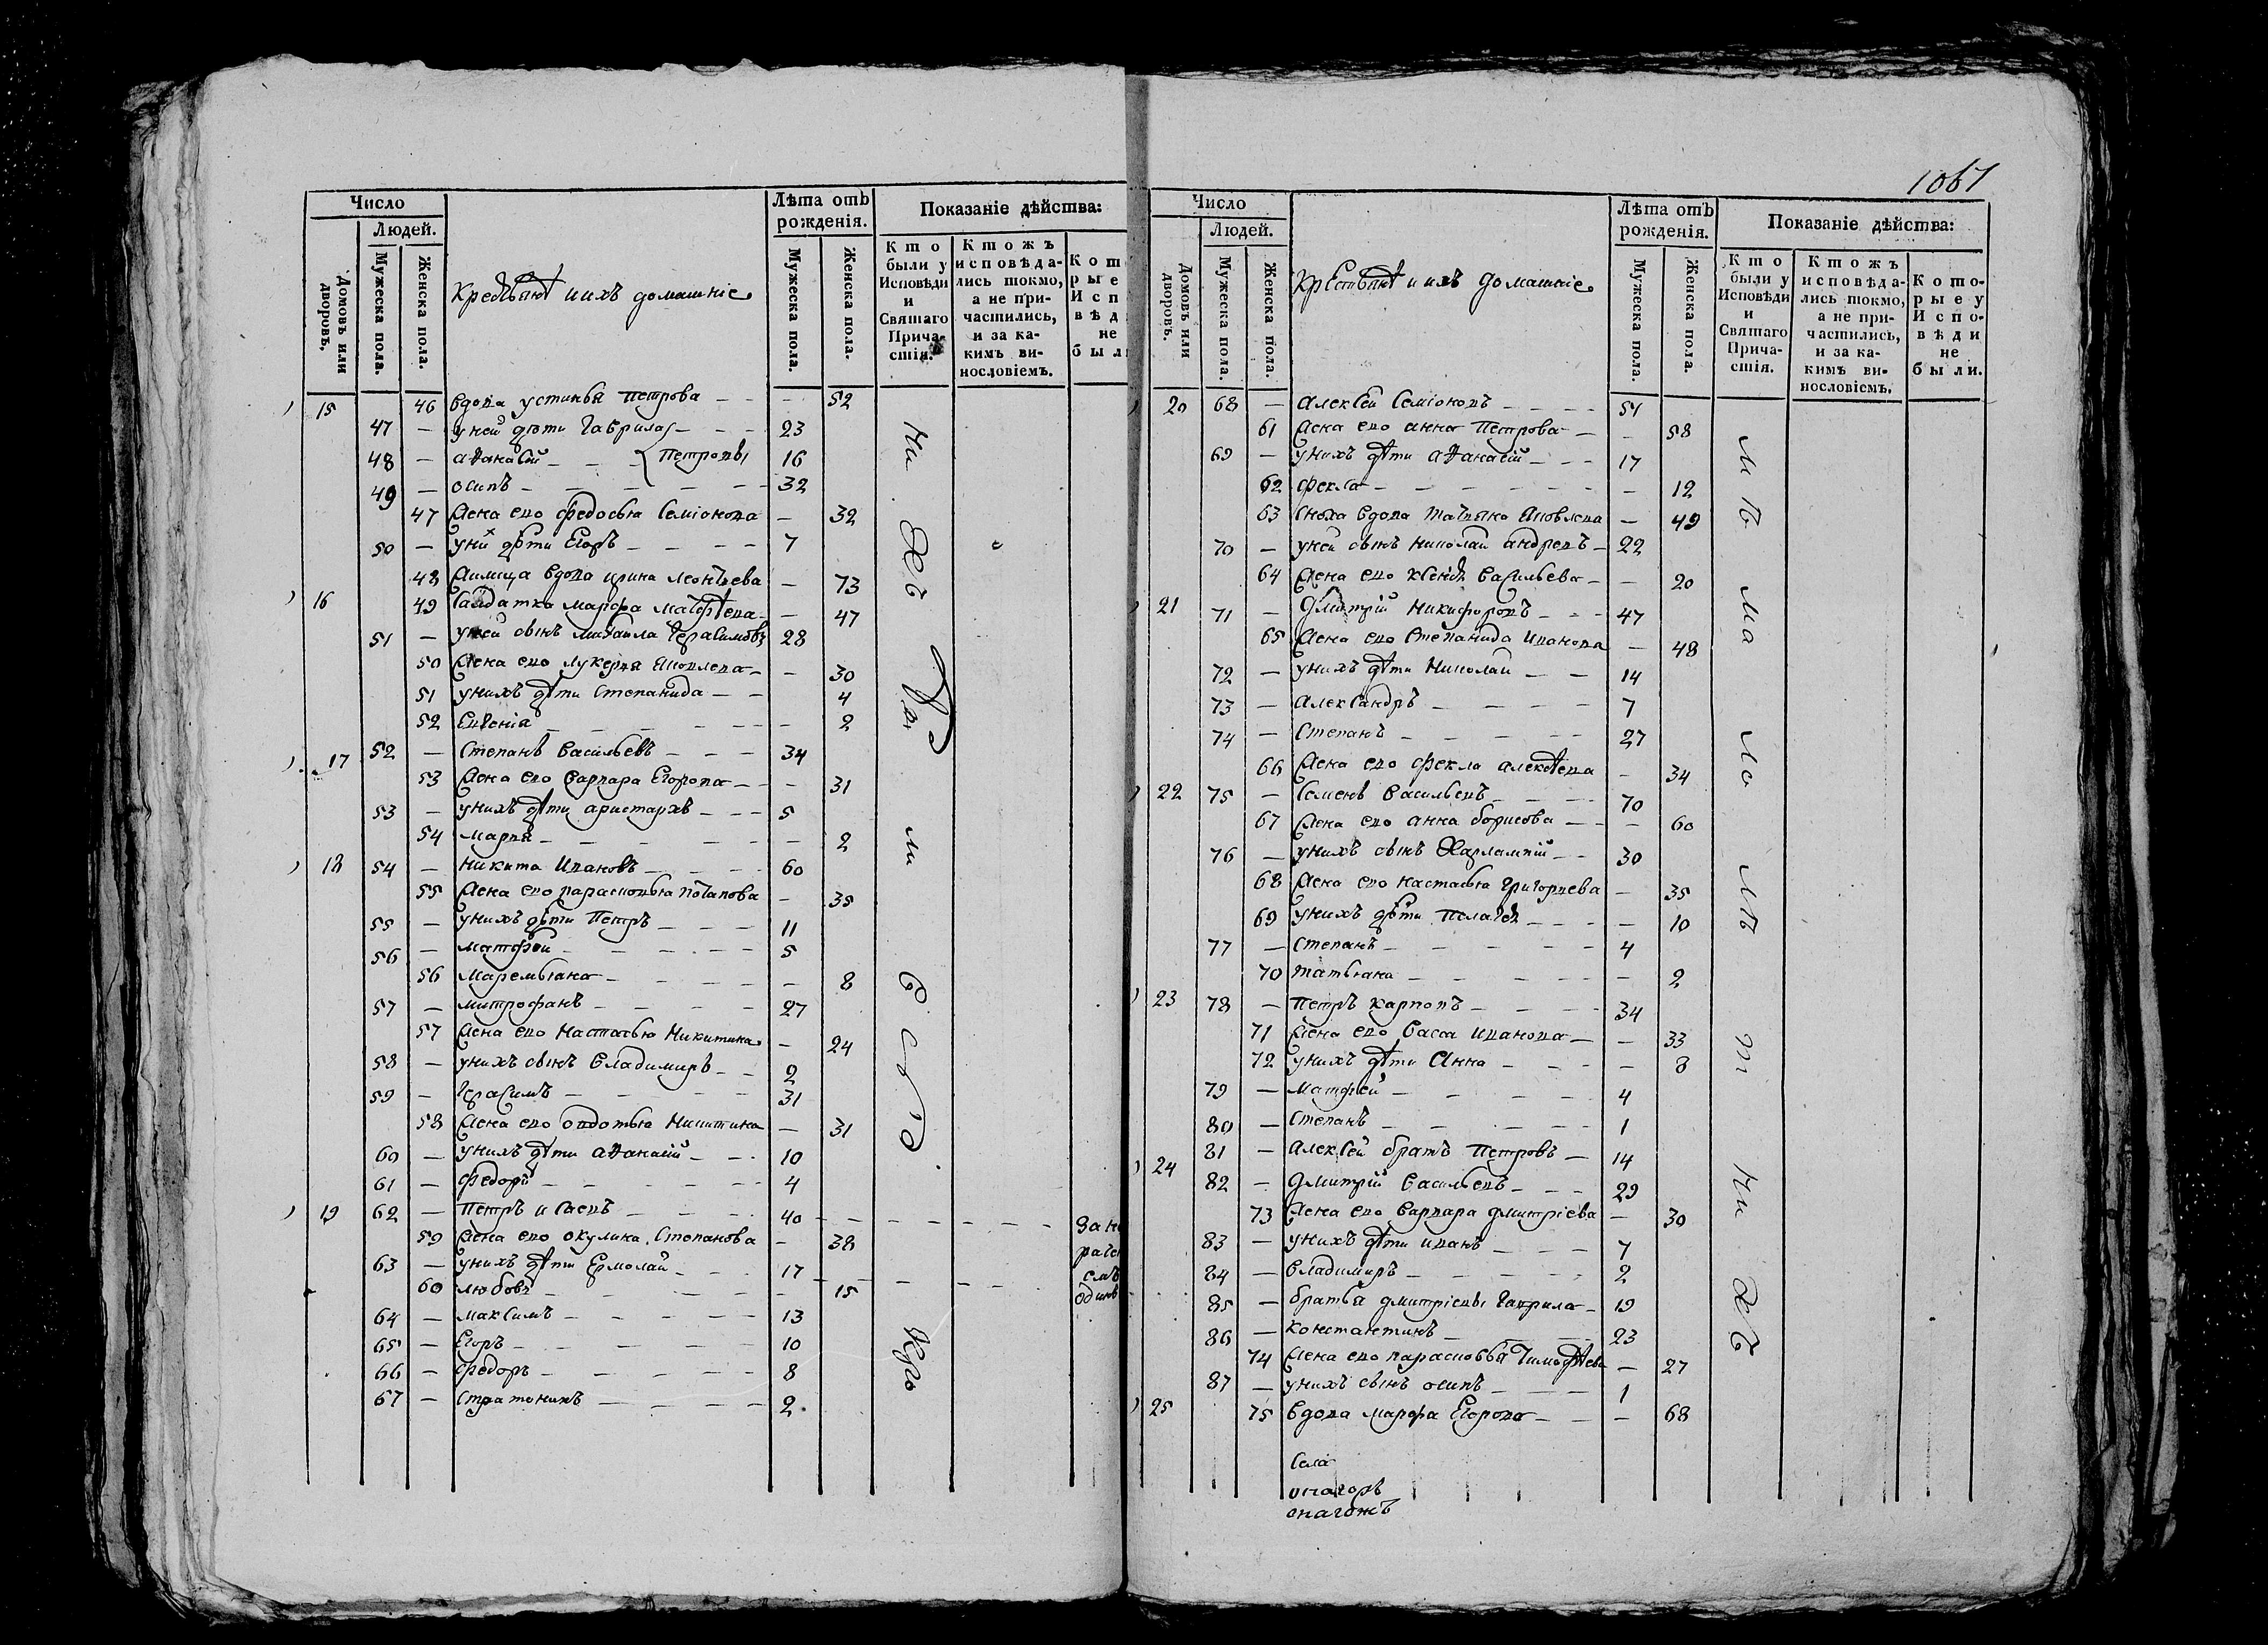 1067
Число
Людей.
Домовъ или дворовъ.
Мужеска пола.
Женска пола.
Крестьянѣ и ихъ домашніе
Лѣта отъ рожденія.
Мужеска пола.
Женска пола.
Показаніе дѣйства:
Кто были у Исповѣди и Святаго Причастія.
Ктожъ исповѣдались токмо, а не причастились, и за какимъ винословіемъ.
Кот
рые
Исп
вѣд
не
был
15 46 вдова устинья Петрова 52
47 — у ней дѣти Гаврила 23
48 — аѳанасій Петровы 16
49 — осипъ 32
47 жена ево федосья Семіонова — 32
50 — у них дѣти Егоръ 7
48 вдова ирина леонтьева — 73
16 49 Салдатка марфа матфѣева — 47
51 — у ней сынъ михаила Герасимовъ 28
50 жена ево лукерья Яковлева — 30
51 у нихъ дѣти Степанида 4
52 Евгенія — 2
17 52 — Степанъ Васильевъ 34
53 жена ево варвара Егорова — 31
53 — у нихъ дѣти аристархъ 5
54 марья — 2
18 54 — никита Ивановъ 60
55 жена ево парасковья потапова — 35
55 — у нихъ дѣти Петръ 11
56 — матфей 5
56 маремьяна — 8
57 — митрофанъ 27
57 жена ево Настасья Никитина — 24
58 — у нихъ сынъ Владимиръ 2
59 — Герасимъ 31
58 жена ево овдотья Никитина — 31
60 — у нихъ дѣти аѳанасій 10
61 — федоръ 4
19 62 — Петръ Исаевъ 40
59 жена ево окулина Степанова — 38
63 — у нихъ дѣти Ермолай 17
60 любовь — 15
64 — максимъ 13
65 — Егоръ 10
66 — федоръ 8
67 — стратоникъ 2
Число
Людей.
Домовъ или дворовъ.
Мужеска пола.
Женска пола.
Крестьянѣ и ихъ домашніе
Лѣта отъ рожденія.
Мужеска пола.
Женска пола.
Показаніе дѣйства:
Кто были у Исповѣди и Святаго Причастія.
Ктожъ исповѣдались токмо, а не причастились, и за какимъ винословіемъ.
Которые у Исповѣди не были.
20 68 — алексѣй Семіоновъ 51
61 жена ево анна Петрова — 58
69 — у нихъ дѣти аѳанасій 17
62 фекла — 12
63 сноха вдова татьяна Яковлева — 49
70 — у ней сынъ николай андреевъ 22
64 жена ево ксенія васильева — 20
21 71 — Дмитрій Никифоровъ 47
65 жена ево Степанида Иванова — 48
72 — у нихъ дѣти Николай 14
73 — александръ 7
74 — Степанъ 27
66 жена ево фекла алексѣева — 34
22 75 — Семенъ Васильевъ 70
67 жена ево анна борисова — 60
76 — у нихъ сынъ Харлампій 30
68 жена ево настасья григорьева — 35
69 у нихъ дѣти пелагея — 10
77 — степанъ 4
70 татьяна — 2
23 78 — Петръ карповъ 34
71 жена ево васса иванова — 33
72 у нихъ дѣти Анна — 8
79 — Матфей 4
80 — Степанъ 1
81 — Алексѣй братъ Петровъ 14
24 82 — Дмитрій Васильевъ 29
73 жена ево варвара дмитріева — 30
83 — у нихъ дѣти иванъ 7
84 — Владимиръ 2
85 — братья дмитріевы Гаврила 19
86 — константинъ 23
74 жена ево парасковья тимофѣева — 27
87 — у нихъ сынъ осипъ 1
25 75 вдова марфа Егорова — 68
Села